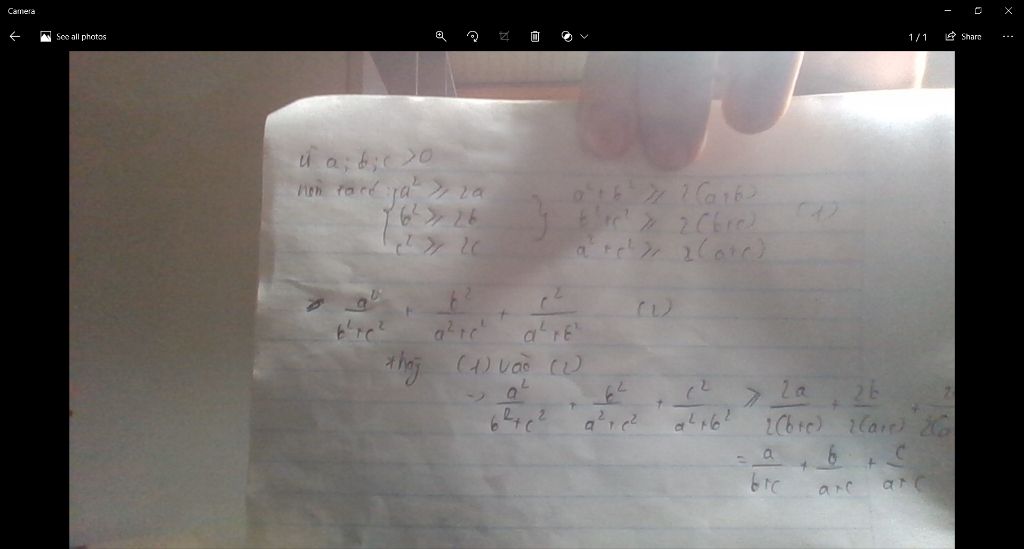 Camera
See all photos
1 / 1
Share
Vì a; b; c > 0
nên ta có: { a² ≥ 2a
b² ≥ 2b
c² ≥ 2c }
a² + b² ≥ 2(a+b)
b² + c² ≥ 2(b+c) (1)
a² + c² ≥ 2(a+c)
a²/(b²+c²) + b²/(a²+c²) + c²/(a²+b²) (2)
thay (1) vào (2)
-> a²/(b²+c²) + b²/(a²+c²) + c²/(a²+b²) ≥ 2a/2(b+c) + 2b/2(a+c) + 2
= a/(b+c) + b/(a+c) + c/(a+c)